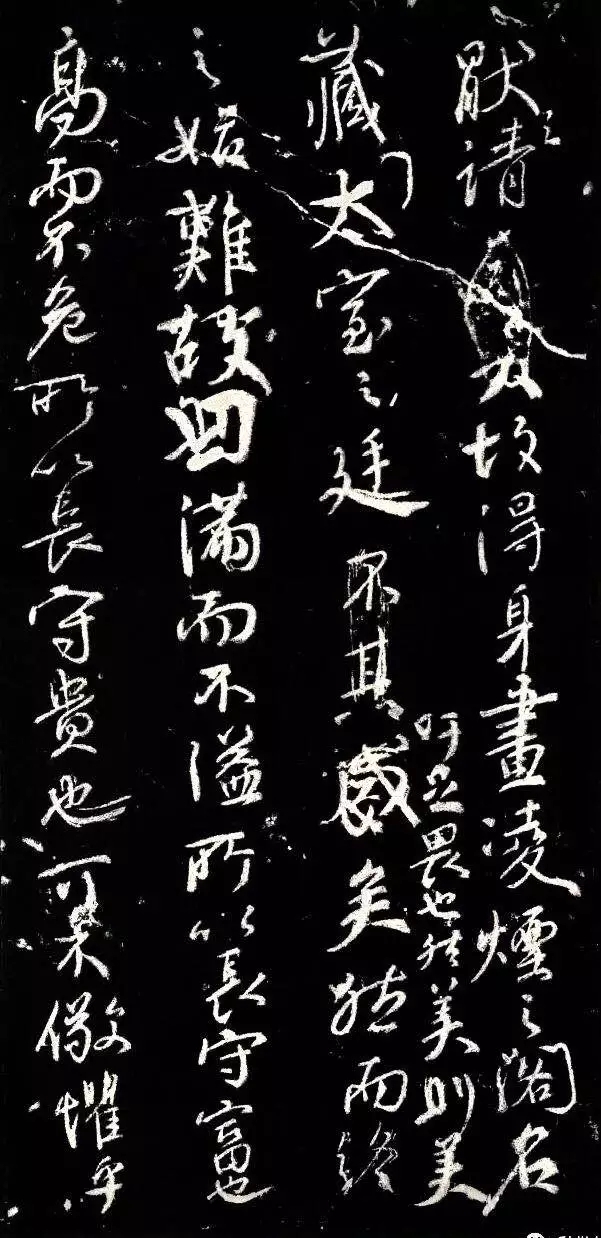 厭之請故得身畫凌煙之閣名
吁足畏也然美則美
藏太室之廷矣然而終
之始難故曰滿而不溢所以長守富也
高而不危所以長守貴也可不儆懼乎